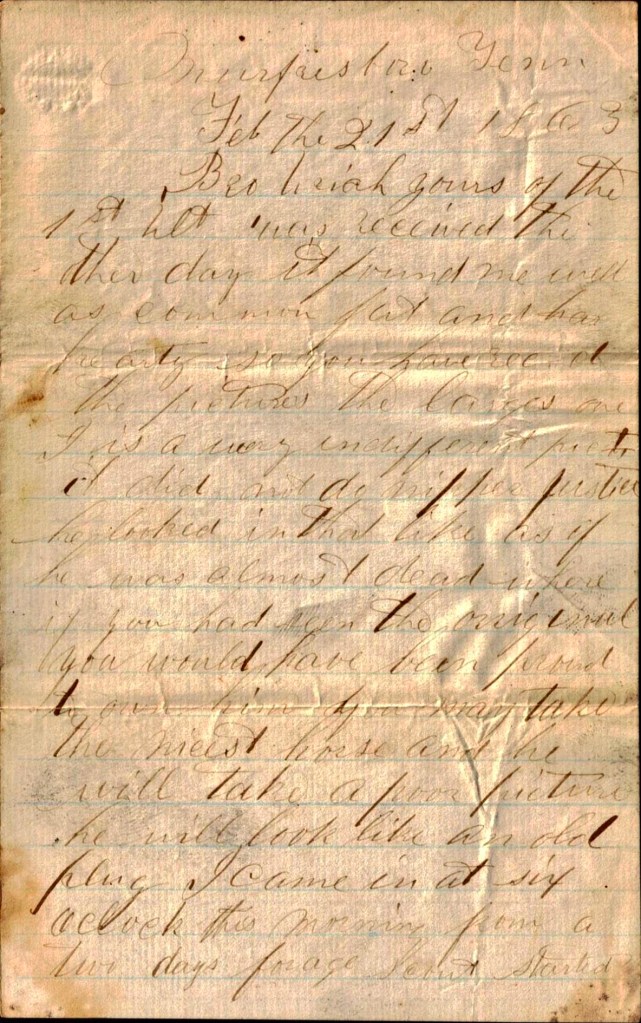 Murfresboro Tenn
Feb the 21st 1863
Bro Uriah yours of the
1st ult was received the
other day it found me well
as common fat and
hearty so you have rec. d
the pictures the larges one
I is a very indifferent
it did not do nipper justice
he looked in that like as if
he was almost dead where
if you had seen the original
you would have been proud
to own him you may take
the nicest horse and he
will take a poor picture
he will look like an old
plug I came in at six
oclock this morning from a
two days forage Scout started